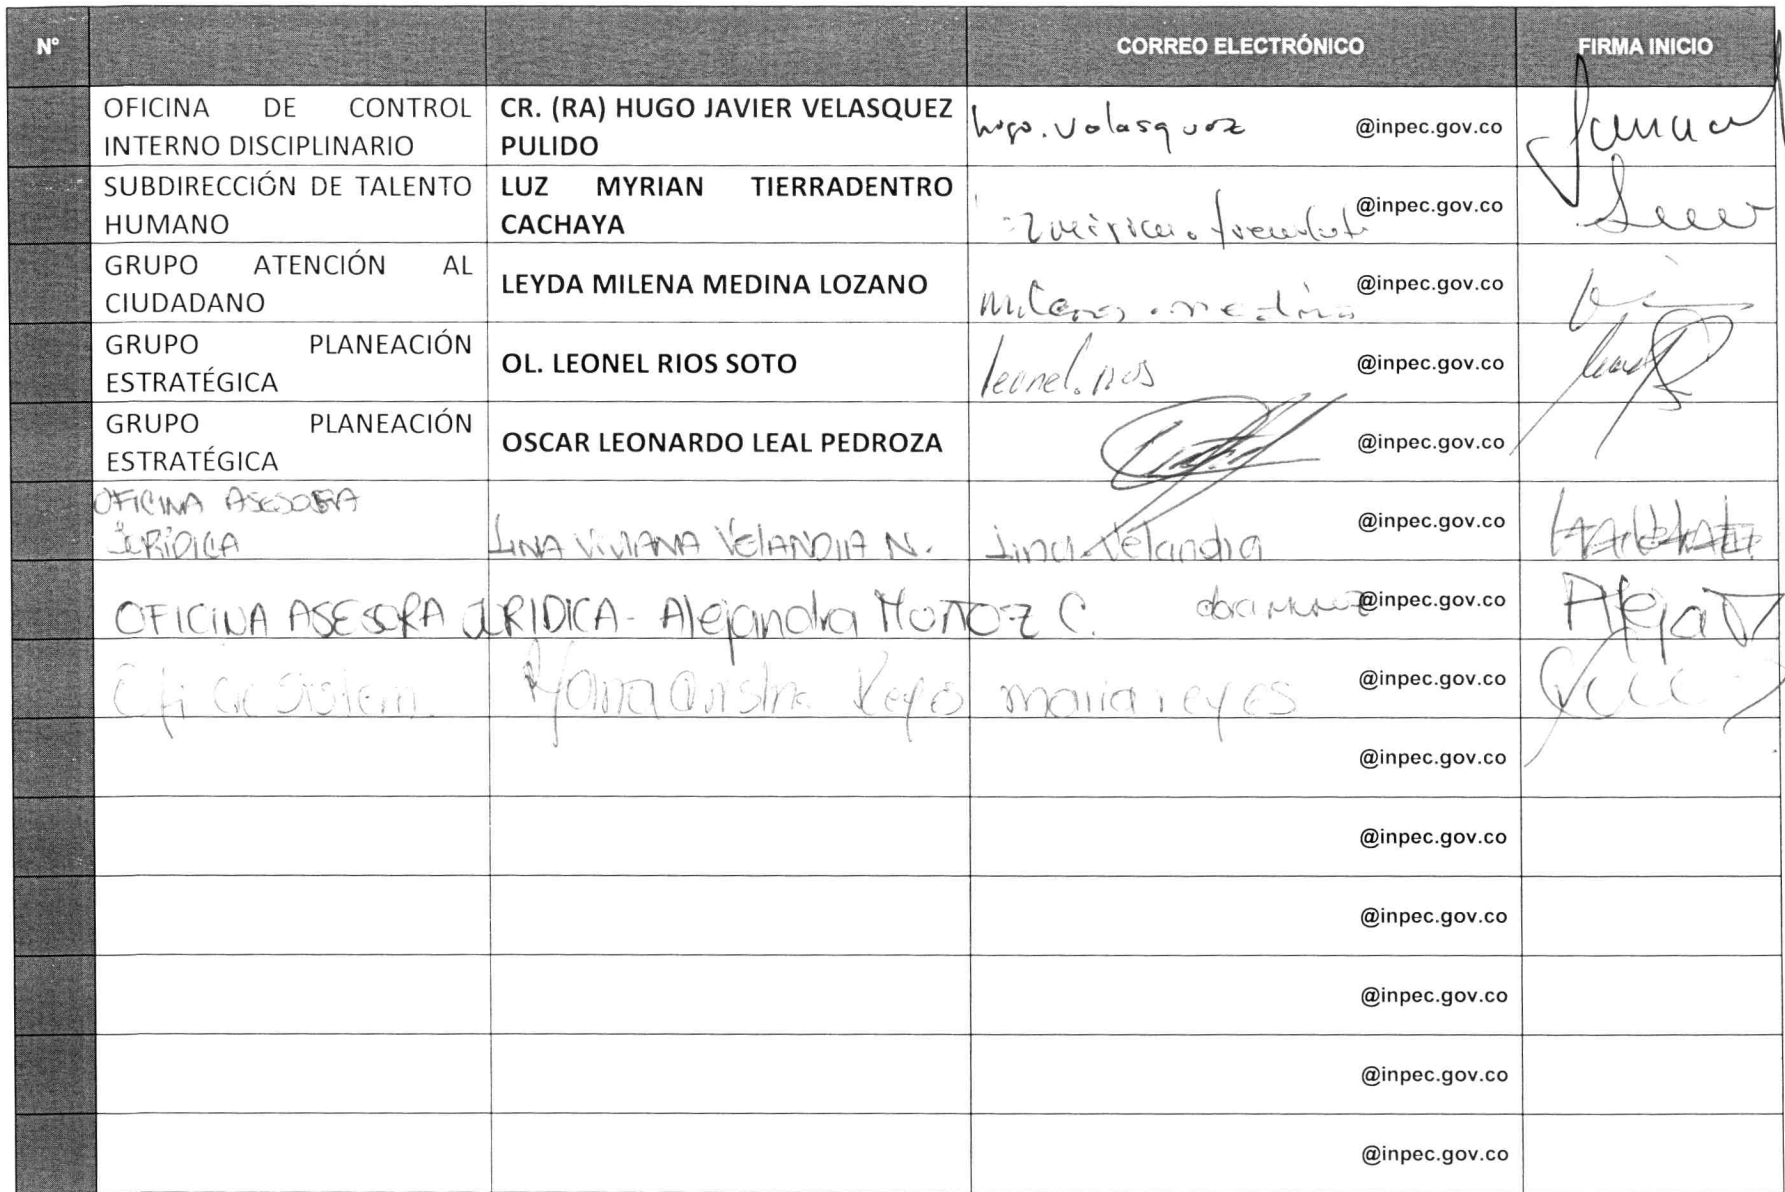 N° CORREO ELECTRÓNICO FIRMA INICIO
OFICINA DE CONTROL
INTERNO DISCIPLINARIO
CR. (RA) HUGO JAVIER VELASQUEZ
PULIDO
hugo.velasquez @inpec.gov.co
SUBDIRECCIÓN DE TALENTO
HUMANO
LUZ MYRIAN TIERRADENTRO
CACHAYA
@inpec.gov.co
GRUPO ATENCIÓN AL
CIUDADANO
LEYDA MILENA MEDINA LOZANO
milena.medina @inpec.gov.co
GRUPO PLANEACIÓN
ESTRATÉGICA
OL. LEONEL RIOS SOTO
leonel.rios @inpec.gov.co
GRUPO PLANEACIÓN
ESTRATÉGICA
OSCAR LEONARDO LEAL PEDROZA
@inpec.gov.co
OFICINA ASESORA
JURÍDICA
LINA VIVIANA VELANDIA N.
lina.velandia @inpec.gov.co
OFICINA ASESORA JURIDICA - Alejandra MUÑOZ C. @inpec.gov.co
Maria Cristina Reyes maria.reyes @inpec.gov.co
@inpec.gov.co
@inpec.gov.co
@inpec.gov.co
@inpec.gov.co
@inpec.gov.co
@inpec.gov.co